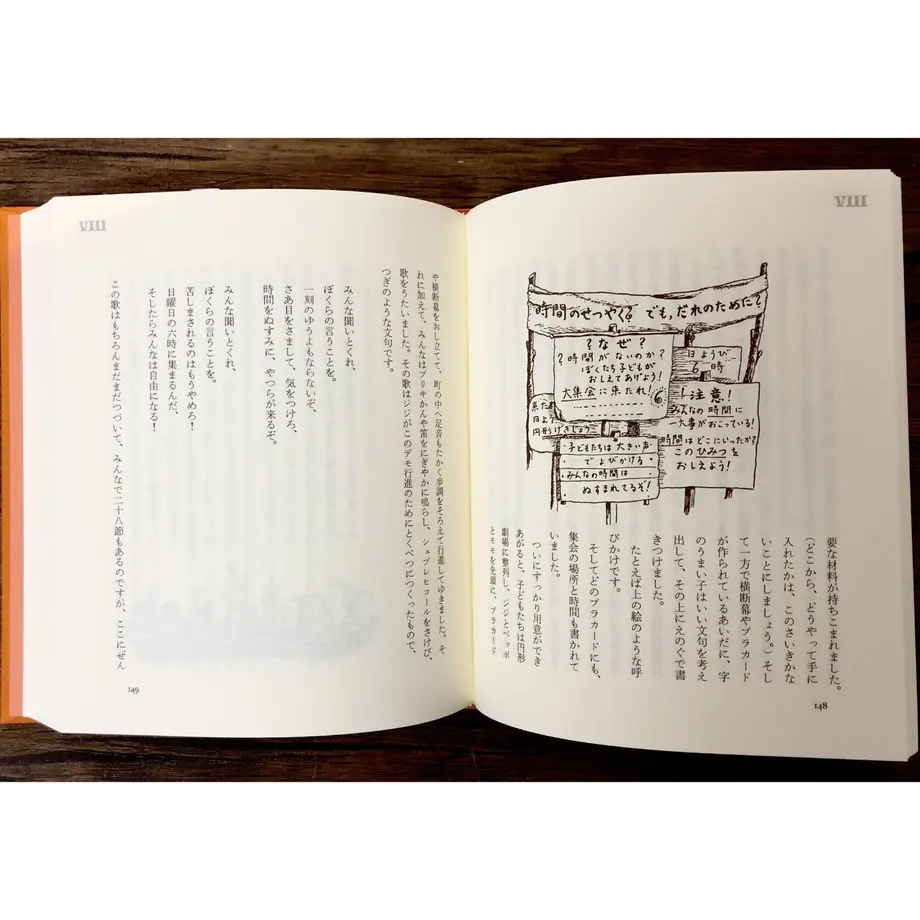 VIII
時間のせつやく? でも、だれのために?
?なぜ?
?時間がないのか?
ぼくたち子どもが
おしえてあげよう!
大集会に来たれ!
6
日ようび
6時
来た
日よう
円形げきじょう
!注意!
みんなの時間に
一大事がおこっている!
時間はどこにいったか?
このひみつを
おしえよう!
・子どもたちは大きい声
でよびかける
・みんなの時間は
ぬすまれてるぞ!
要な材料が持ちこまれました。
(どこから、どうやって手に
入れたかは、このさいきかな
いことにしましょう。)そし
て一方で横断幕やプラカード
が作られているあいだに、字
のうまい子はいい文句を考え
出して、その上にえのぐで書
きつけました。
たとえば上の絵のような呼
びかけです。
そしてどのプラカードにも、
集会の場所と時間も書かれて
いました。
ついにすっかり用意ができ
あがると、子どもたちは円形
劇場に整列し、ジジとベッポ
とモモを先頭に、プラカード
148
VIII
や横断幕をおし立てて、町の中へ足音もたかく歩調をそろえて行進してゆきました。そ
れに加えて、みんなはブリキかんや笛をにぎやかに鳴らし、シュプレヒコールをさけび、
歌をうたいました。その歌はジジがこのデモ行進のためにとくべつにつくったもので、
つぎのような文句です。
みんな聞いとくれ、
ぼくらの言うことを。
一刻のゆうよもならないぞ、
さあ目をさまして、気をつけろ、
時間をぬすみに、やつらが来るぞ。
みんな聞いとくれ、
ぼくらの言うことを。
苦しまされるのはもうやめろ!
日曜日の六時に集まるんだ、
そしたらみんなは自由になる!
この歌はもちろんまだまだつづいて、みんなで二十八節もあるのですが、ここにぜん
149